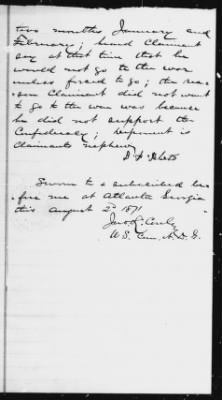 two months January and
February; heard Claimant
say at that time that he
would not go to the war
unless forced to go; the rea-
son Claimant did not want
to go to the war was because
he did not support the
Confederacy; deponent is
claimants nephew
Sworn to & subscribed be-
fore me at Atlanta Georgia
this August 2d 1871
U.S. Com. N.D.G.